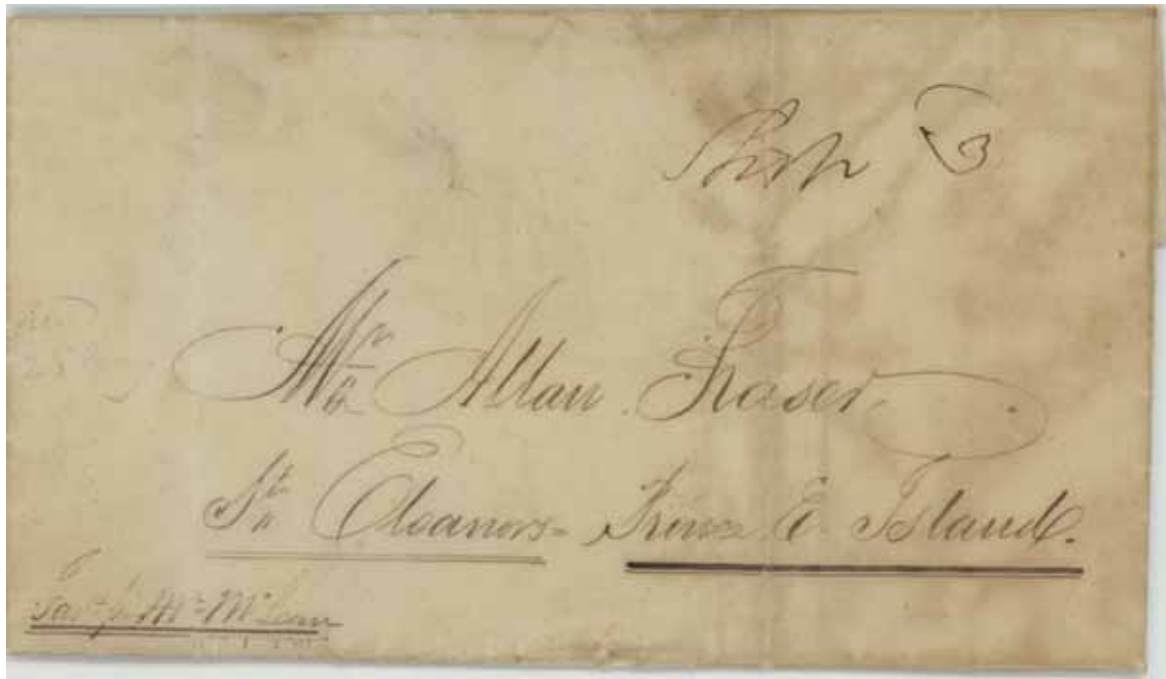 Ship 3
Mr Allan Fraser
St Eleanors - Prince E. Island.
Mr McLean